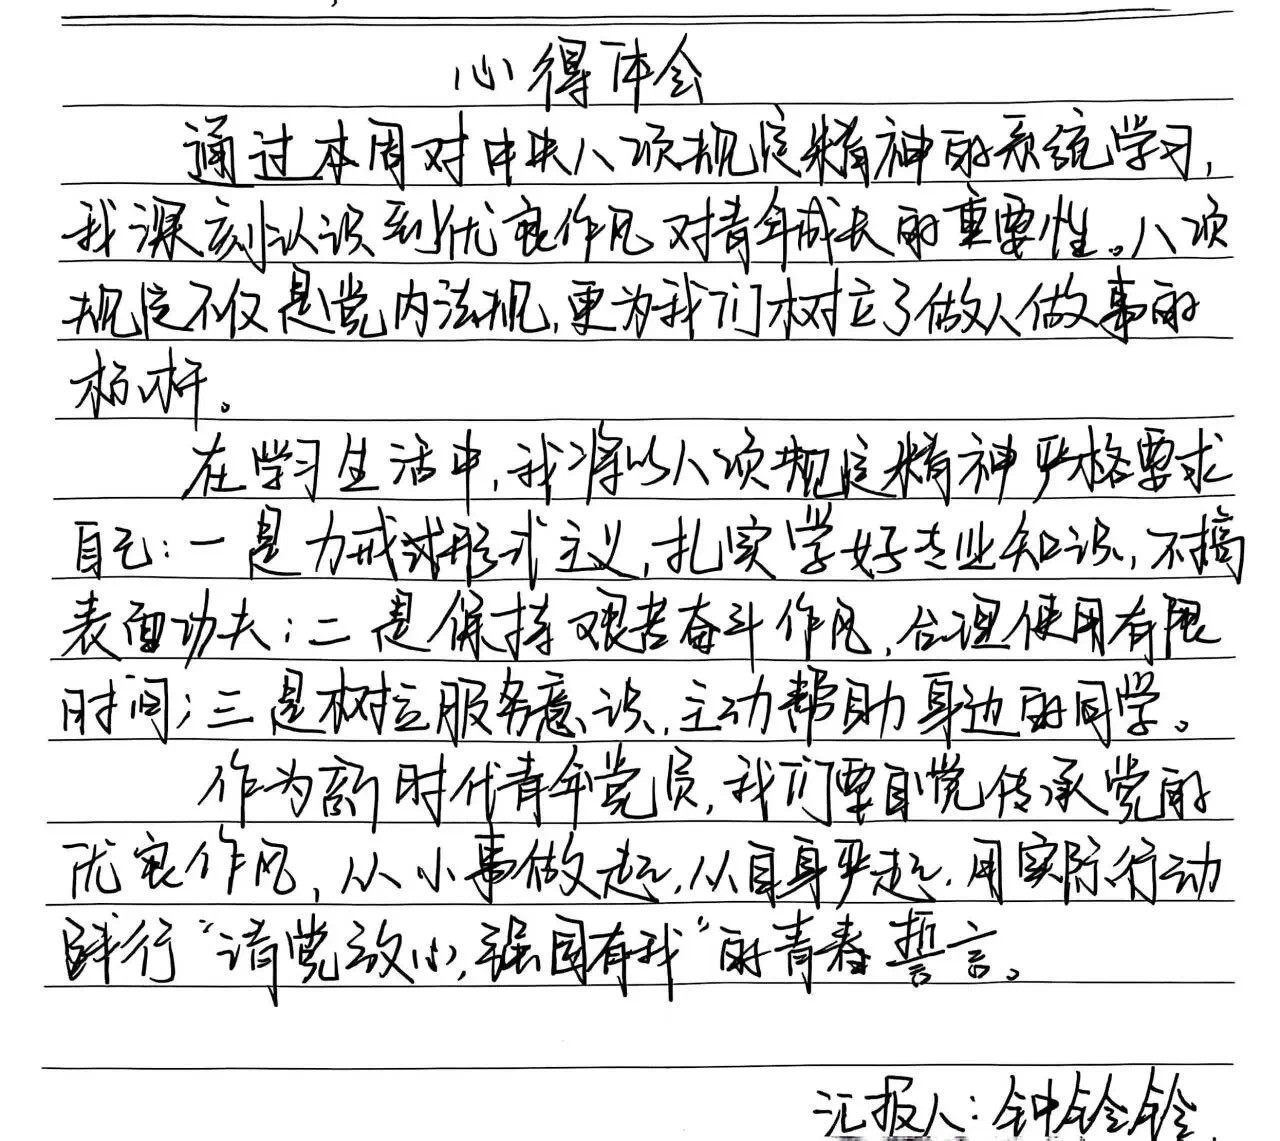 心得体会
通过本周对中央八项规定精神的系统学习,
我深刻认识到优良作风对青年成长的重要性。八项
规定不仅是党内法规,更为我们树立了做人做事的
标杆。
在学习生活中,我将以八项规定精神严格要求
自己:一是力戒形式主义,扎实学好专业知识,不搞
表面功夫;二是保持艰苦奋斗作风,合理使用有限
时间;三是树立服务意识,主动帮助身边的同学。
作为新时代青年党员,我们要自觉传承党的
优良作风,从小事做起,从自身严起,用实际行动
践行“请党放心,强国有我”的青春誓言。
汇报人:钟铃铃